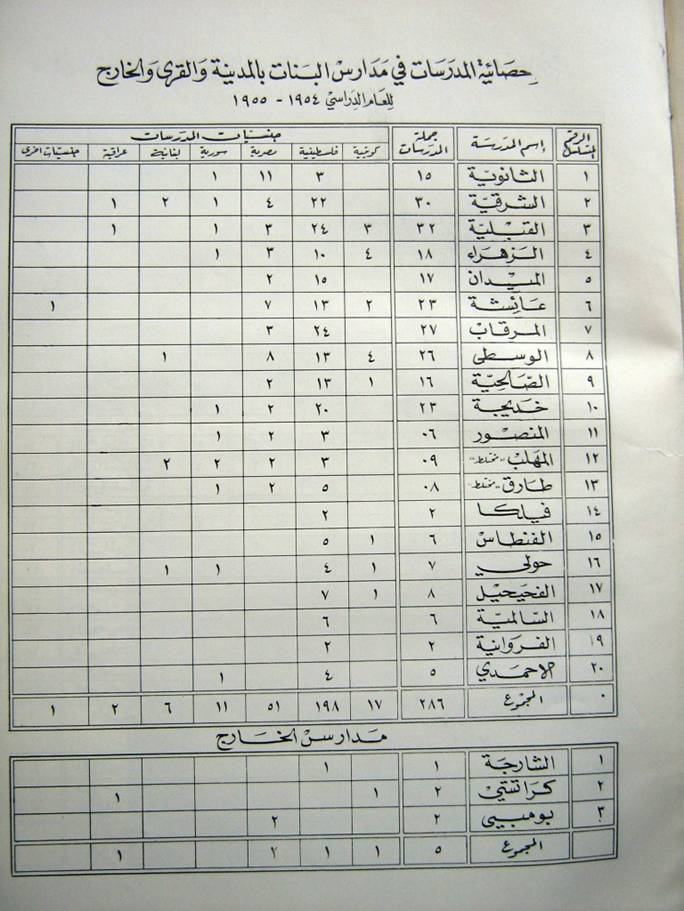 إحصائية المدرسات في مدارس البنات بالمدينة والقرى والخارج
للعام الدراسي ١٩٥٤ - ١٩٥٥
الرقم المسلسل | إسم المدرسة | جملة المدرسات | جنسيات المدرسات
كويتية | فلسطينية | مصرية | سورية | لبنانية | عراقية | جنسيات اخرى
١ | الثانوية | ١٥ | | ٣ | ١١ | ١ | | |
٢ | الشرقية | ٣٠ | | ٢٢ | ٤ | ١ | ٢ | ١ |
٣ | القبلية | ٣٢ | ٣ | ٢٤ | ٣ | ١ | | ١ |
٤ | الزهراء | ١٨ | ٤ | ١٠ | ٣ | ١ | | |
٥ | الميدان | ١٧ | | ١٥ | ٢ | | | |
٦ | عائشة | ٢٣ | ٢ | ١٣ | ٧ | | | | ١
٧ | المرقاب | ٢٧ | | ٢٤ | ٣ | | | |
٨ | الوسطى | ٢٦ | ٤ | ١٣ | ٨ | | ١ | |
٩ | الصالحية | ١٦ | ١ | ١٣ | ٢ | | | |
١٠ | خديجة | ٢٣ | | ٢٠ | ٢ | ١ | | |
١١ | المنصور | ٠٦ | | ٣ | ٢ | ١ | | |
١٢ | المهلب "مختلط" | ٠٩ | | ٣ | ٢ | ٢ | ٢ | |
١٣ | طارق "مختلط" | ٠٨ | | ٥ | ٢ | ١ | | |
١٤ | فيلكا | ٢ | | ٢ | | | | |
١٥ | الفنطاس | ٦ | ١ | ٥ | | | | |
١٦ | حولي | ٧ | ١ | ٤ | | ١ | ١ | |
١٧ | الفحيحيل | ٨ | ١ | ٧ | | | | |
١٨ | السالمية | ٦ | | ٦ | | | | |
١٩ | الفروانية | ٢ | | ٢ | | | | |
٢٠ | الاحمدي | ٥ | | ٤ | | ١ | | |
٠ | المجموع | ٢٨٦ | ١٧ | ١٩٨ | ٥١ | ١١ | ٦ | ٢ | ١
مدارس الخارج
١ | الشارجة | ١ | | ١ | | | | |
٢ | كراتشي | ٢ | ١ | | | | | ١ |
٣ | بومبيي | ٢ | | | ٢ | | | |
المجموع | ٥ | ١ | ١ | ٢ | | | ١ |